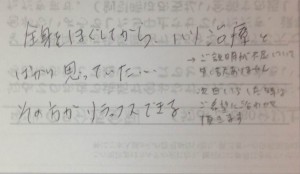 全身をほぐしてから いい治療と
ばかり思っていた…
その方がリラックスできる
→ ご説明が不足していて
申し訳ありません
次回
ご希望に合わせて
頂きます